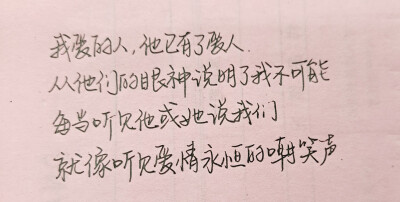 我爱的人，他已有了爱人.
从他们的眼神说明了我不可能
每当听见他或她说我们
就像听见爱情永恒的嘲笑声